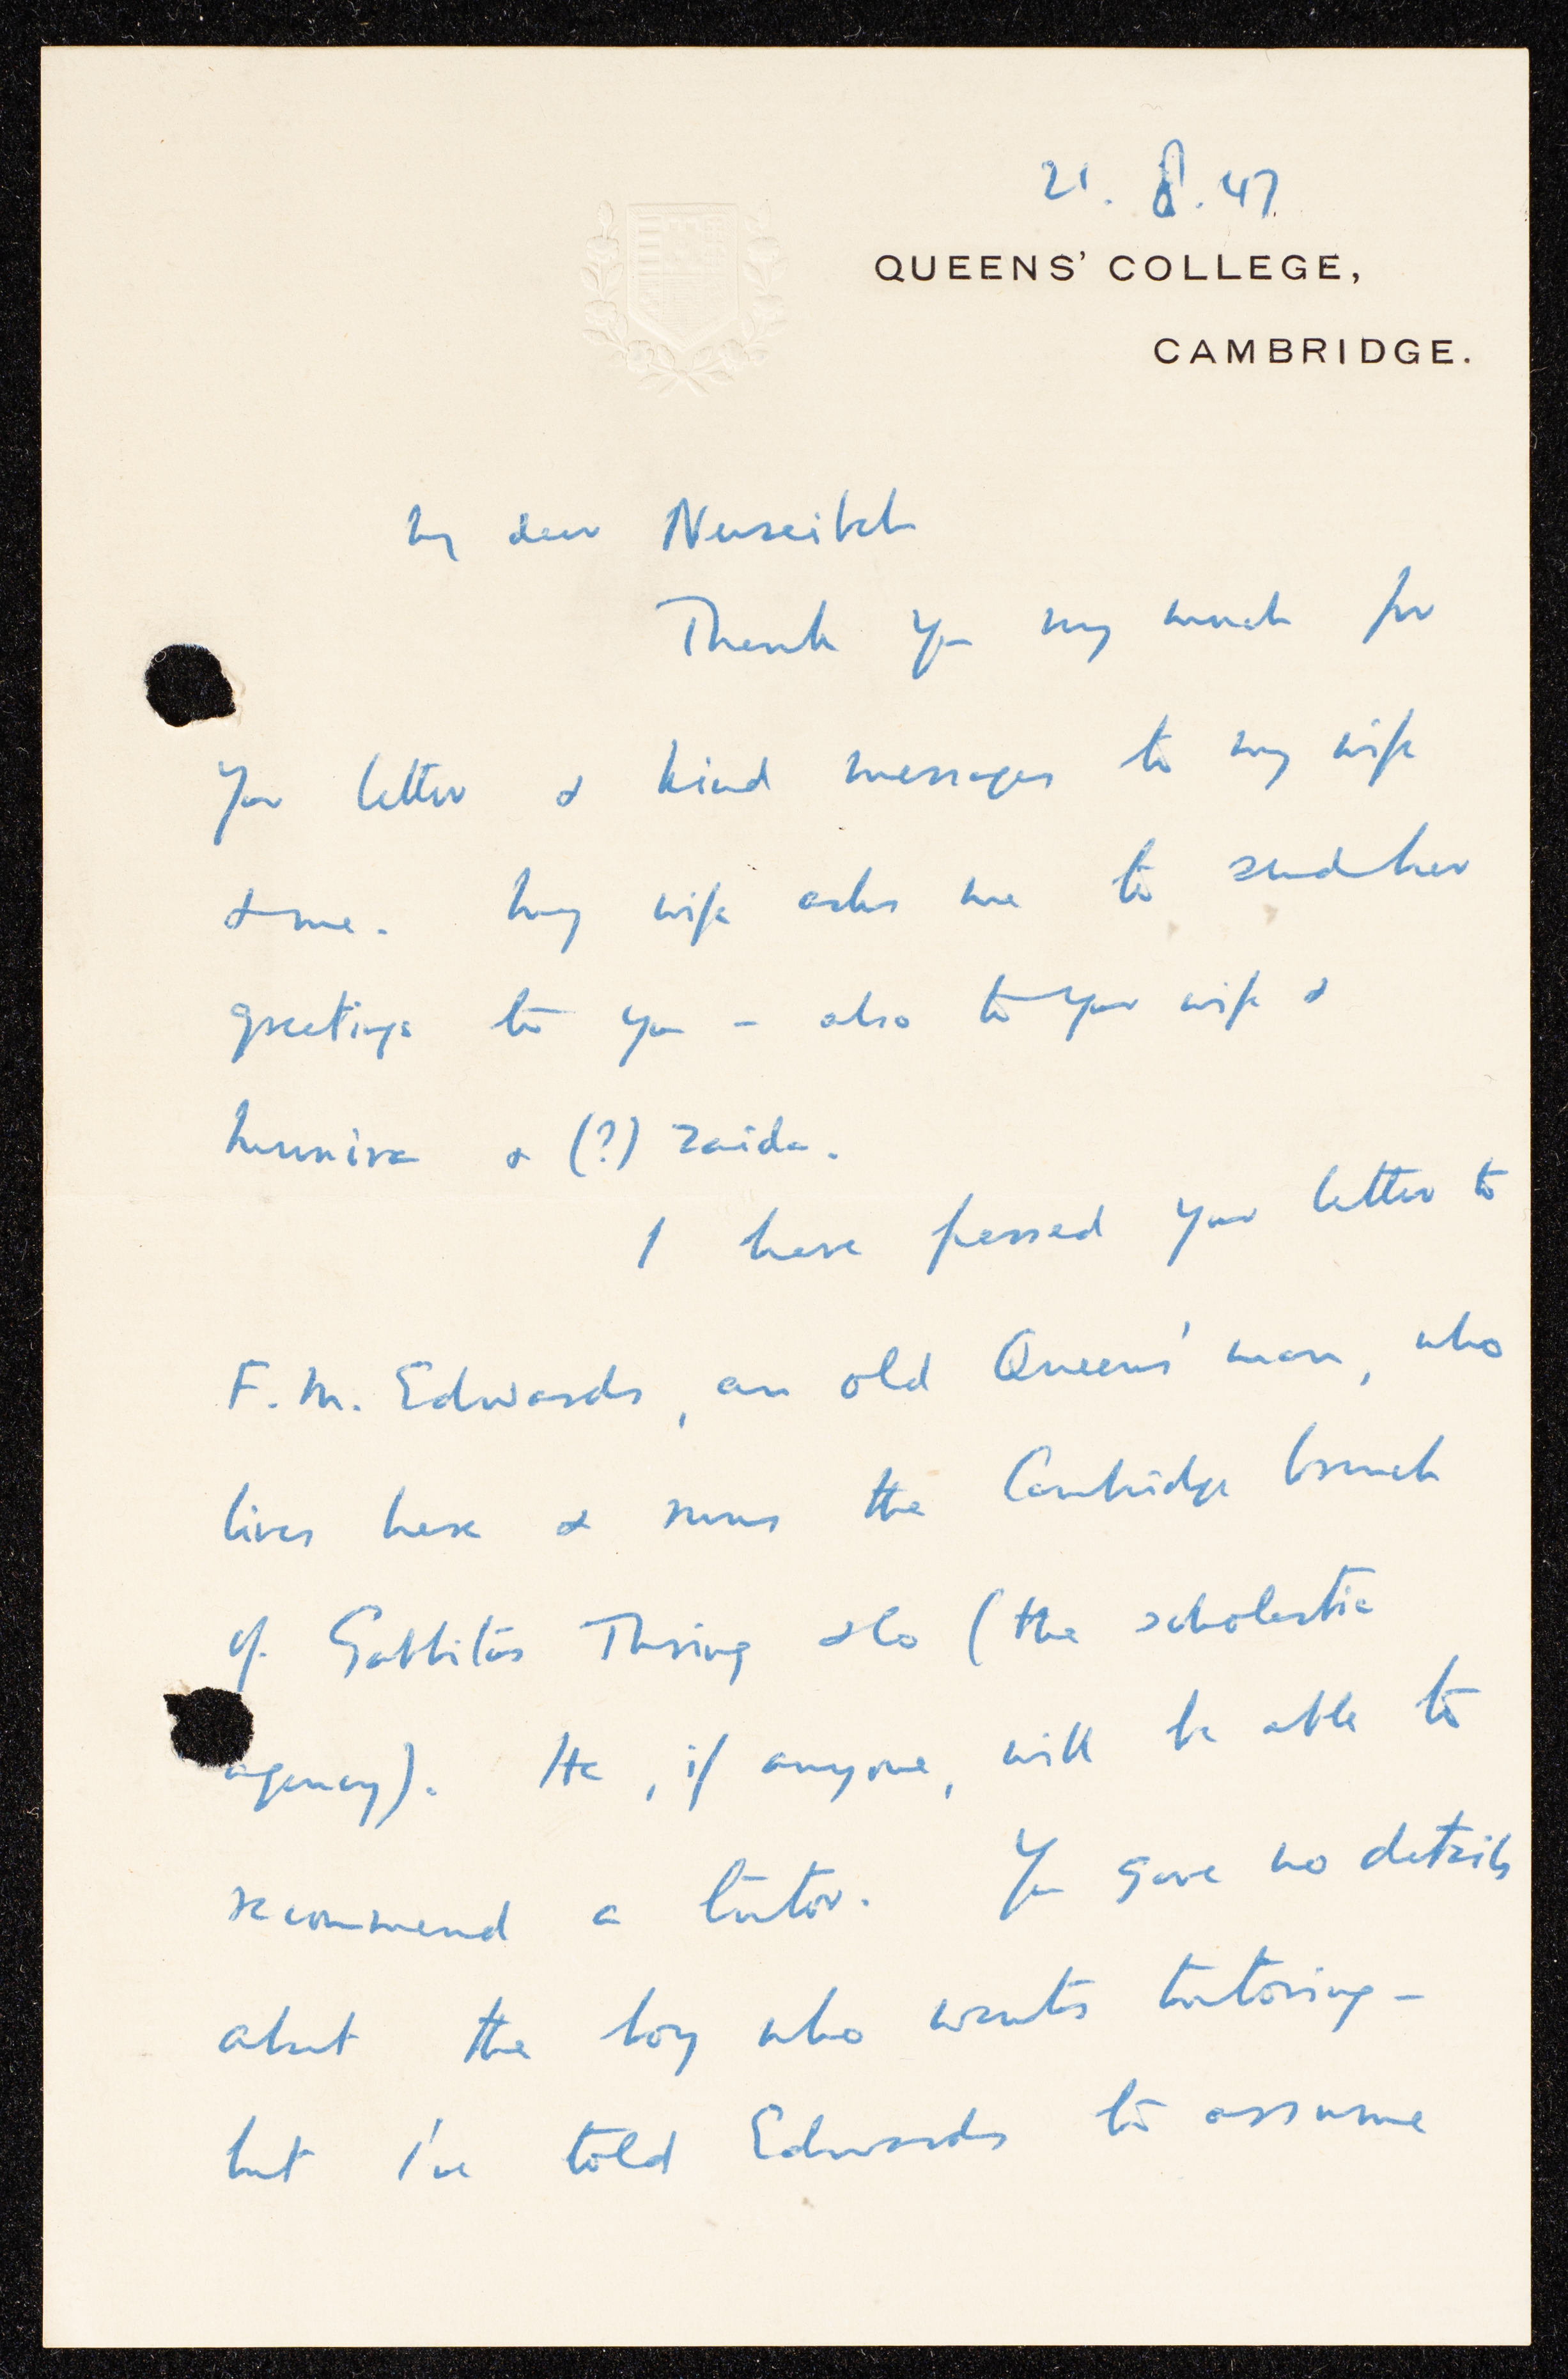 21. 8. 47
QUEENS' COLLEGE,
CAMBRIDGE.
My dear Nuseibeh
Thank you very much for
your letter & kind messages to my wife
& me. My wife asks me to send her
greetings to you – also to your wife &
Munira & (?) Zaida.
I have passed your letter to
F. M. Edwards, an old Queens' man, who
lives here & runs the Cambridge branch
of Gabbitas Thring & Co (the scholastic
agency). He, if anyone, will be able to
recommend a tutor. You gave no details
about the boy who wants tutoring –
but I've told Edwards to assume